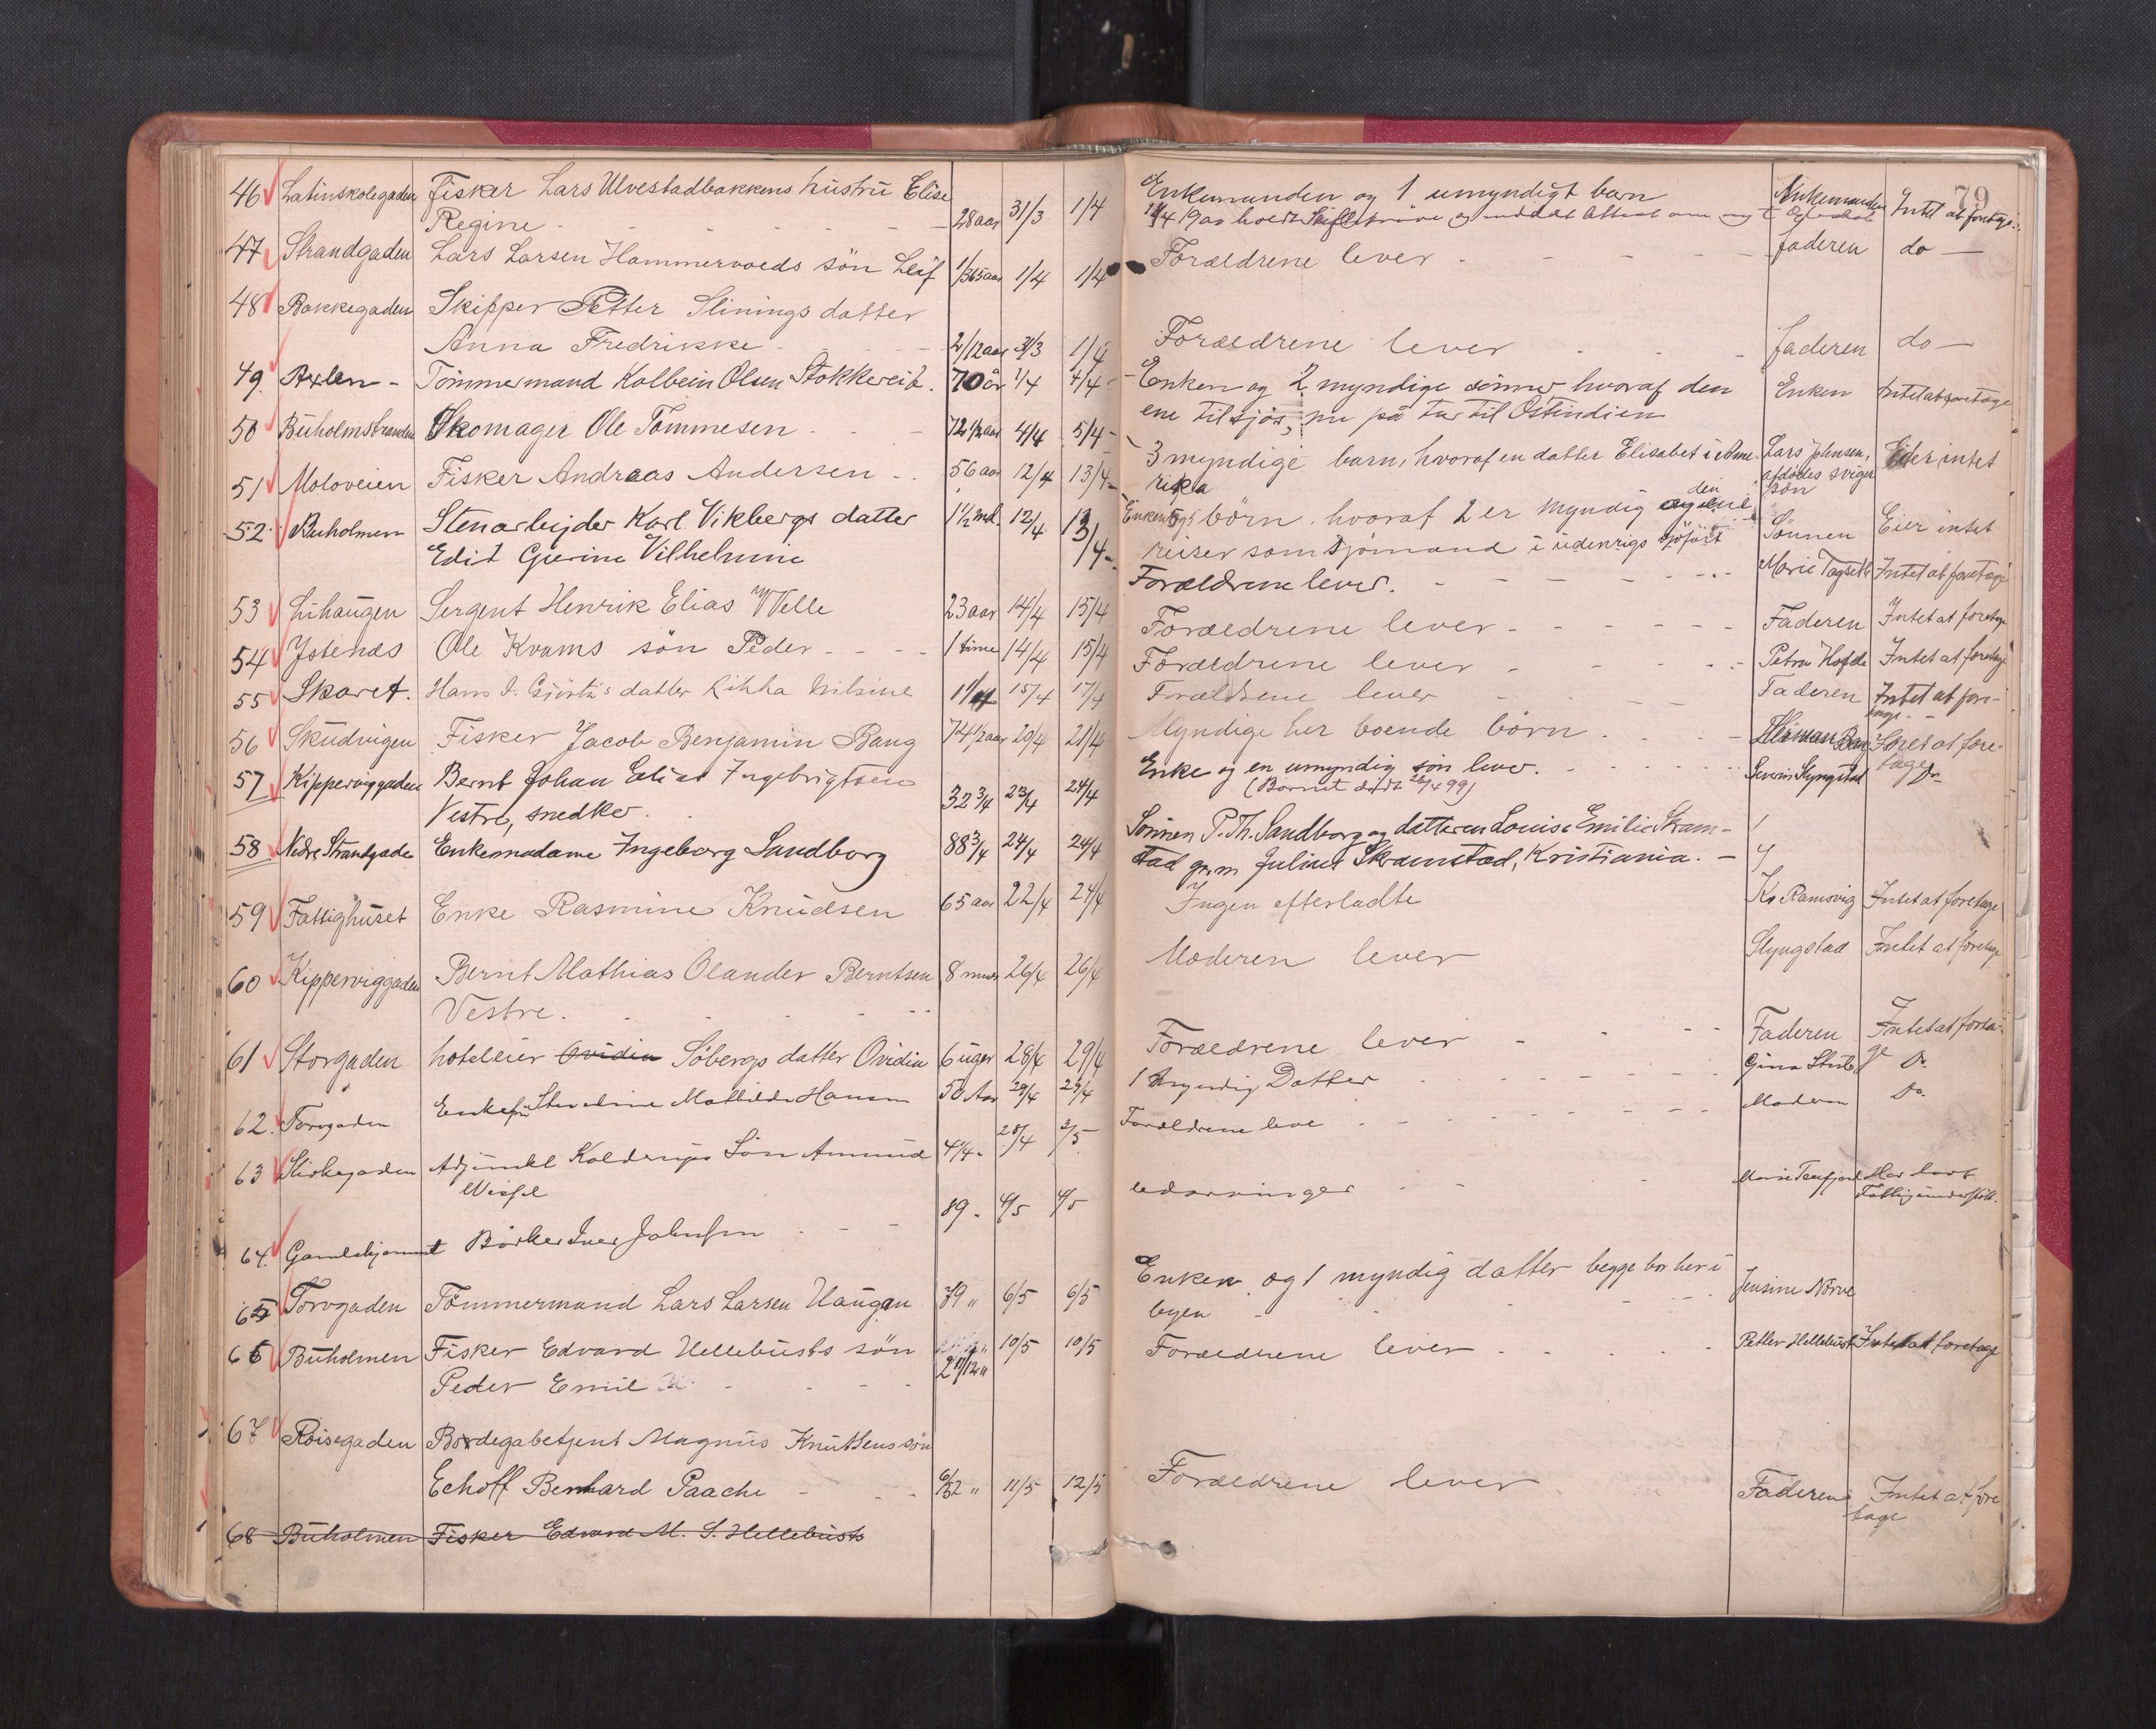 79
46 Latinskolegaden Fisker Lars Ulvestadbakkens hustru Elise
Regine 28 aar 31/3 1/4 Enkemanden og 1 umyndigt barn Enkemanden Intet at foretage
47 Strandgaden Lars Larsen Hammervolds sön Leif 1/365 aar 1/4 1/4 Forældrene lever faderen do
48 Bakkegaden Skipper Petter Slinings datter
Anna Fredrikke 2/12 aar 31/3 1/4 Forældrene lever faderen do
49 Axlen Tömmermand Kolbein Olsen Stokkereit 70 år 1/4 4/4 Enken og 2 myndige sönner, hvoraf den Enken Intet at foretage
ene tilsjös, nu på tur til Ostindien
50 Buholmstranden Skomager Ole Tommesen 72 1/2 aar 4/4 5/4 3 myndige barn, hvoraf en datter Elisabet i Ame- Lars Johnsen, Eier intet
rika afdödes sviger
sön
51 Moloveien Fisker Andreas Andersen 56 aar 12/4 13/4 Enken og 5 börn, hvoraf 2 er myndig den ene Sönnen Eier intet
reiser som sjömand i udenrigs sjöfart
52 Buholmen Stenarbejder Karl Vikbergs datter 1 1/2 md. 12/4 13/4 Forældrene lever. Marie Tagseth Intet at foretage
Edit Gurine Vilhelmine
53 Lihaugen Sergent Henrik Elias Welle 23 aar 14/4 15/4 Forældrene lever Faderen Intet at foretage
54 Ystenæs Ole Kvams sön Peder 1 time 14/4 15/4 Forældrene lever Petra Hofde Intet at foretage
55 Skaret. Hans J. Gjörtz's datter Rikka Nilsine 15/4 17/4 Forældrene lever Faderen Intet at fore-
tage
56 Skudvigen Fisker Jacob Benjamin Bang 74 1/2 aar 20/4 21/4 Myndige her boende börn Herman Bang Intet at fore-
tage
57 Kipperviggaden Bernt Johan Elias Ingebrigtsen
Vestre, snedker. 32 3/4 23/4 24/4 Enke og en umyndig sön lever. Severin Slyngstad Do
(Barnet døde 26/4 99)
58 Nedre Strandgade Enkemadame Ingeborg Sandborg 88 3/4 24/4 24/4 Sönnen P. Th. Sandborg og datteren Louise Emilie Skram-
stad g.m. Julius Skramstad, Kristiania.
59 Fattighuset Enke Rasmine Knudsen 65 aar 22/4 24/4 Ingen efterladte K. Ramsvig Intet at foretage
60 Kipperviggaden Bernt Mathias Olander Berntsen 8 mndr 26/4 26/4 Moderen lever Slyngstad Intet at foretage
Vestre.
61 Storgaden hoteleier Ovidia Söbergs datter Ovidia 6 uger 28/4 29/4 Forældrene lever Faderen Intet at foreta-
ge
62. Torvgaden Enkefru Mathilde Hansen 50 Aar 29/4 29/4 1 Myndig Datter Gina Do.
63 Kirkegaden Adjunkt Koldrups Sön Amund 4 1/4 28/4 2/5 Forældrene leve Moderen Do.
64. Gamlehjemmet Bödker Iver Johnsen 89. 4/5 4/5 Udarvinger Marie Tenfjord Har havt
Fattigunderstöt.
65 Torvgaden Tömmermand Lars Larsen Haugen 79 " 6/5 6/5 Enken og 1 myndig datter begge bor her i Jensine Nörve
byen
66 Buholmen Fisker Edvard Hellebusts sön 2 11/12 " 10/5 10/5 Forældrene lever Petter Hellebust Intet at foretage
Peder Emil
67 Röisegaden Bordegabetjent Magnus Knutsens sön
Echoff Bernhard Paache 6/52 " 11/5 12/5 Forældrene lever Faderen Intet at fore
tage
68 Buholmen Fisker Edvard M. S. Hellebusts